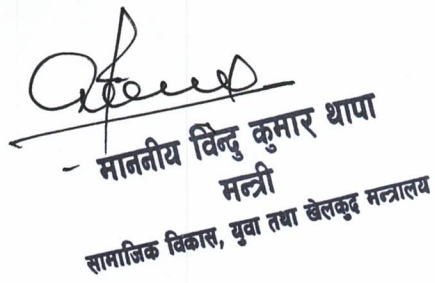 - माननीय विन्दु कुमार थापा
मन्त्री
सामाजिक विकास, युवा तथा खेलकुद मन्त्रालय